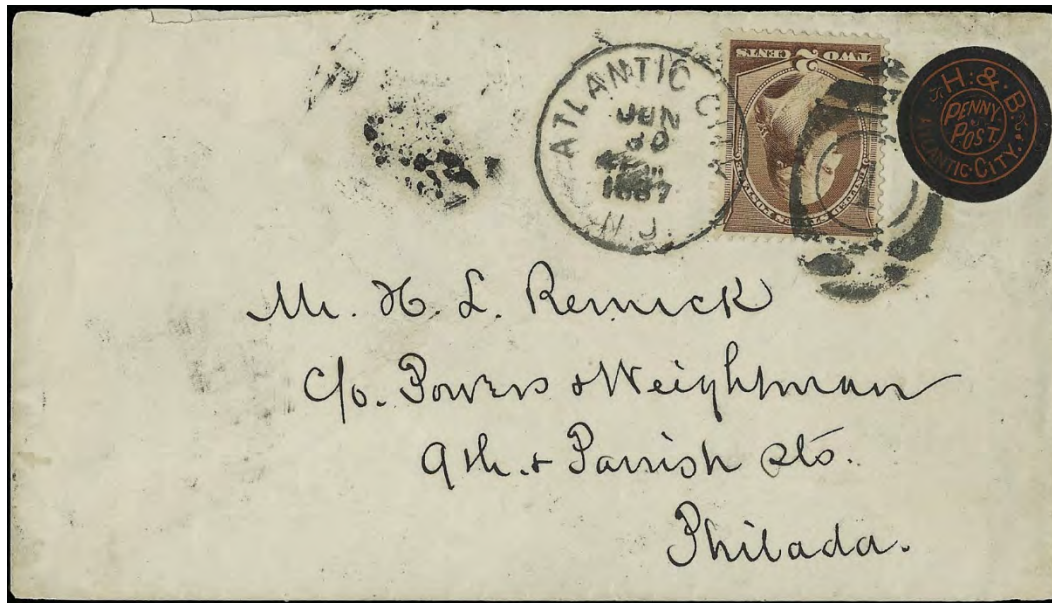 ATLANTIC CITY
JUN
30
1887
N.J.
TWO 2 CENTS
H. & B.
PENNY
POST
ATLANTIC CITY.
Mr. H. L. Remick
c/o. Powers & Weightman
9th. & Parrish sts.
Philada.